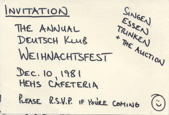 INVITATION
THE ANNUAL
DEUTSCH KLUB
WEIHNACHTSFEST
DEC. 10, 1981
HEHS CAFETERIA
PLEASE R.S.V.P. IF YOU'RE COMING
SINGEN
ESSEN
TRINKEN
+ THE AUCTION